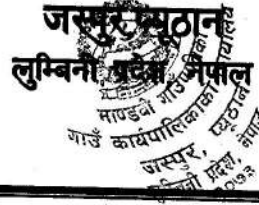 जस्पुर प्यूठान
लुम्बिनी प्रदेश नेपाल
माण्डवी गाउँपालिका
गाउँ कार्यपालिकाको कार्यालय
जस्पुर, प्यूठान
लुम्बिनी प्रदेश, नेपाल
२०७३